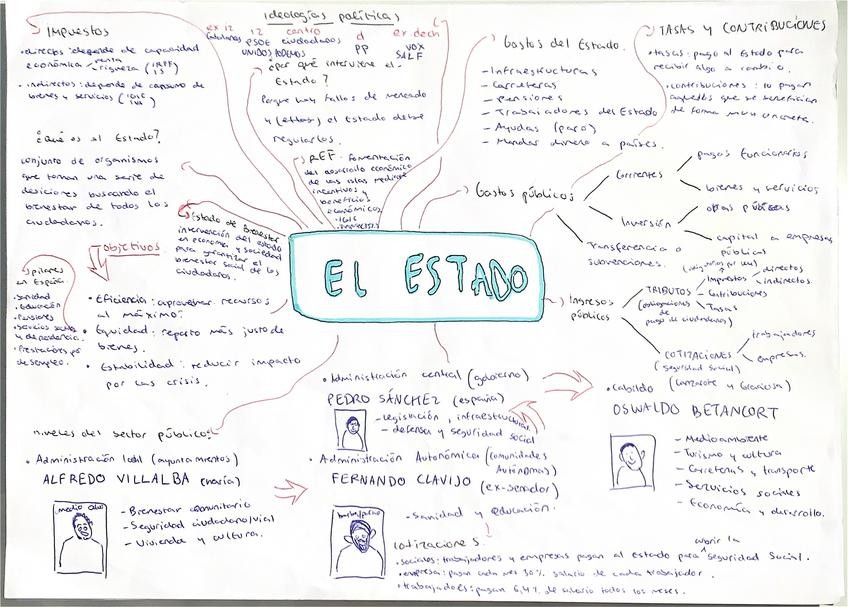 IMPUESTOS
• directos: depende de capacidad
económica
renta
riqueza (IRPF
IS)
• indirectos: depende de consumo de
bienes y servicios (IGIC
IVA)
¿Qué es el Estado?
conjunto de organismos
que toman una serie de
desiciones buscando el
bienestar de todos los
ciudadanos.
Ideologías políticas
ex iz iz centro d ex dech
PSOE ciudadanos PP VOX
UNIDOS PODEMOS SALF
¿Por qué interviene el
Estado?
Porque hay fallos de mercado
y (ellos) el Estado debe
regularlos.
REF: fomentación
del desarrollo económico
de las islas mediante
incentivos y
beneficios
económicos
Gastos del Estado.
- Infraestructuras
- Carreteras
- Pensiones
- Trabajadores del Estado
- Ayudas (paro)
- Mandar dinero a países.
TASAS Y CONTRIBUCIONES
• tasas: pago al Estado para
recibir algo a cambio.
• contribuciones: lo pagan
aquellos que se benefician
de forma
Gastos públicos
Corrientes
pagos funcionarios
bienes y servicios
Inversión
obras públicas
capital a empresas
públicas
Transferencia o
subvenciones.
Estado de Bienestar
intervención del estado
en economía y sociedad
para garantizar el
bienestar social de los
ciudadanos.
EL ESTADO
pilares
en España.
• Sanidad
• Educación
• Pensiones
• Servicios sociales
y dependencia.
• Prestaciones por
desempleo.
objetivos
• Eficiencia: aprovechar recursos
al máximo.
• Equidad: reparto más justo de
bienes.
• Estabilidad: reducir impacto
por las crisis.
Ingresos
públicos
TRIBUTOS
(obligaciones de
pago de ciudadanos)
Impuestos
directos
indirectos.
Contribuciones
Tasas
COTIZACIONES
(seguridad social)
trabajadores
empresas.
niveles del sector público:
• Administración local (ayuntamientos)
ALFREDO VILLALBA (haría)
medio calvo
- Bienestar comunitario
- Seguridad ciudadana/vial
- Vivienda y cultura.
• Administración central (gobierno)
PEDRO SÁNCHEZ (españa)
- Legislación, infraestructuras
- defensa y seguridad social
• Administración Autonómica (comunidades
Autónomas)
FERNANDO CLAVIJO (ex-senador)
- Sanidad y educación.
• Cabildo (Lanzarote y Graciosa)
OSWALDO BETANCORT
- Medioambiente
- Turismo y cultura
- Carreteras y transporte
- Servicios sociales
- Economía y desarrollo.
cotizaciones
• sociales: trabajadores y empresas pagan al estado para cubrir la seguridad social.
• empresa: pagan cada mes 30% salario de cada trabajador.
• trabajadores: pagan 6,4% de salario todos los meses.